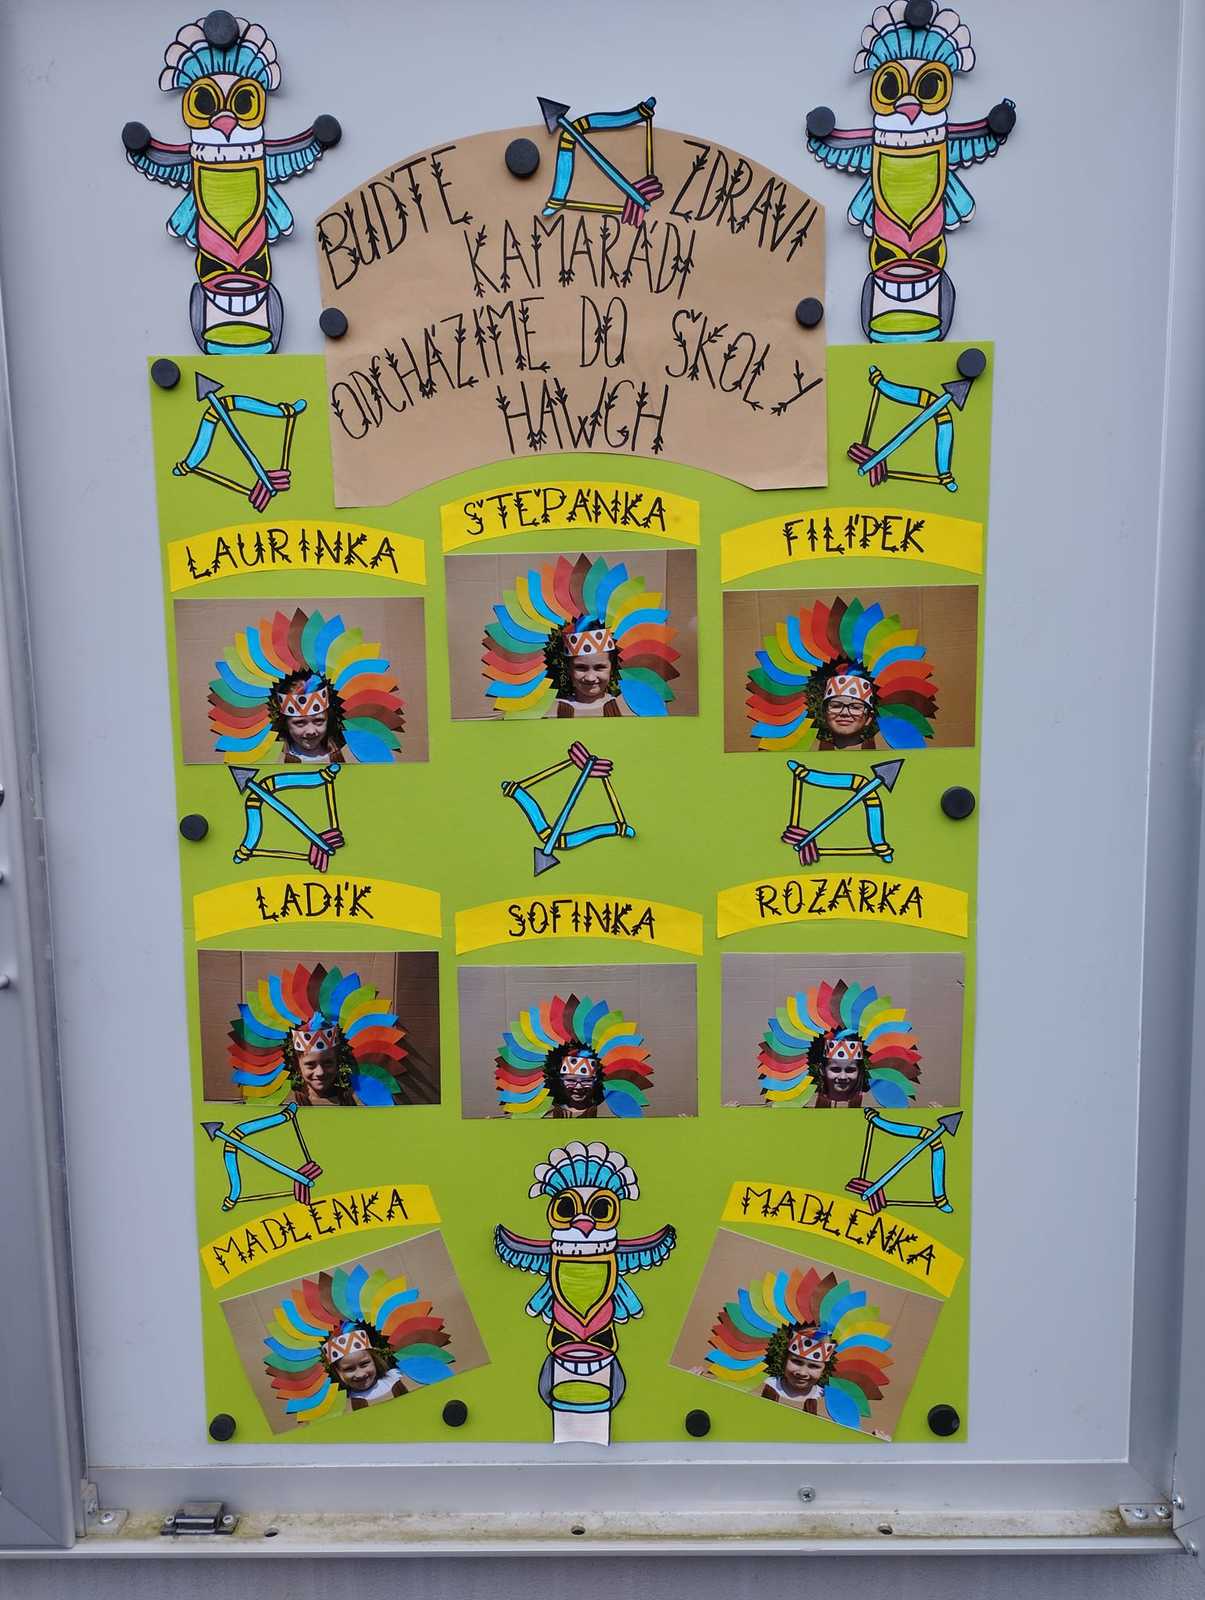 BUĎTE ZDRÁVI
KAMARÁDI
ODCHÁZÍME DO ŠKOLY
HAWGH
LAURINKA
ŠTĚPÁNKA
FILÍPEK
LADÍK
SOFINKA
ROZÁRKA
MADLENKA
MADLENKA